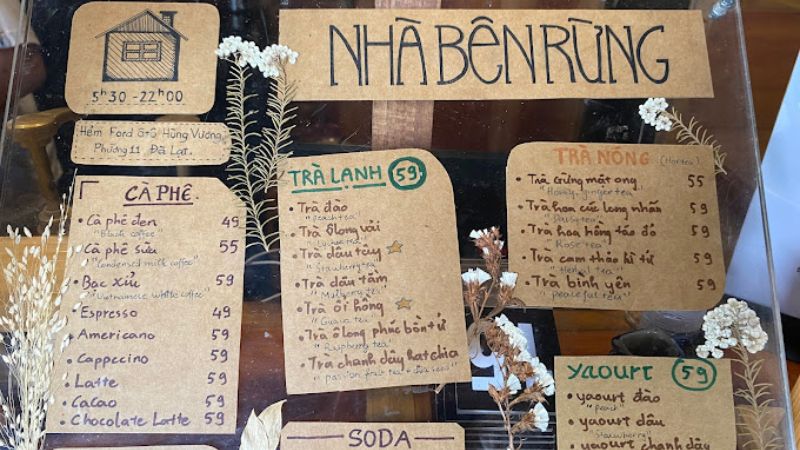 5h30 -22h00
NHÀ BÊN RỪNG
Hẻm Ford ô tô Hùng Vương
Phường 11 Đà Lạt.
CÀ PHÊ
• Cà phê đen 49
"Black coffee"
Cà phê sữa 55
"Condensed milk coffee"
• Bạc xỉu 59
"Vietnamese white coffee"
• Espresso 49
• Americano 59
• Cappccino 59
• Latte 59
• Cacao 59
• Chocolate Latte 59
TRÀ LẠNH 59
• Trà đào
"Peach tea"
• Trà ôlong vải
"Lychee tea"
• Trà dâu tây
"Strawberry tea"
• Trà dâu tằm
"Mulberry tea"
• Trà ổi hồng
"Guava tea"
• Trà ô long phúc bồn tử
"Raspberry tea"
• Trà chanh dây hạt chia
"passion fruit tea + chia seed"
TRÀ NÓNG (Hot tea)
• Trà gừng mật ong 55
"Honey, ginger tea"
• Trà hoa cúc long nhãn 59
"Daisy tea"
• Trà hoa hồng táo đỏ 59
"Rose tea"
• Trà cam thảo kỉ tử 59
"Herbal tea"
• Trà bình yên 59
"peaceful tea"
SODA
yaourt 59
• yaourt đào
"peach"
• yaourt dâu
"Strawberry"
• yaourt chanh dây